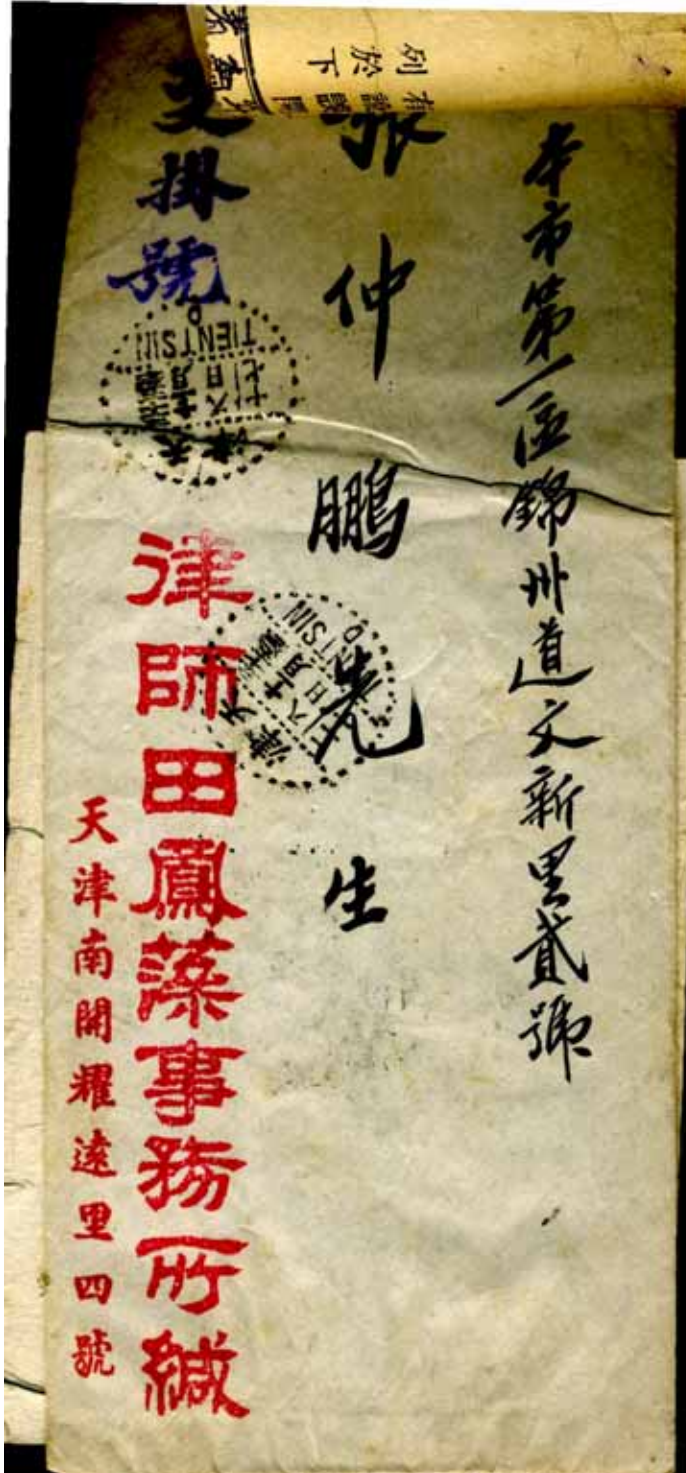 列於下
本市第一區錦州道文新里貳號
張仲鵬先生
掛號
TIENTSIN
天津
TIENTSIN
天津
律師田鳳藻事務所緘
天津南開耀遠里四號